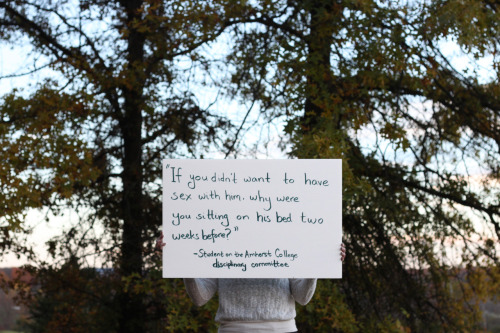 "If you didn't want to have
sex with him, why were
you sitting on his bed two
weeks before?"
~Student on the Amherst College
disciplinary committee